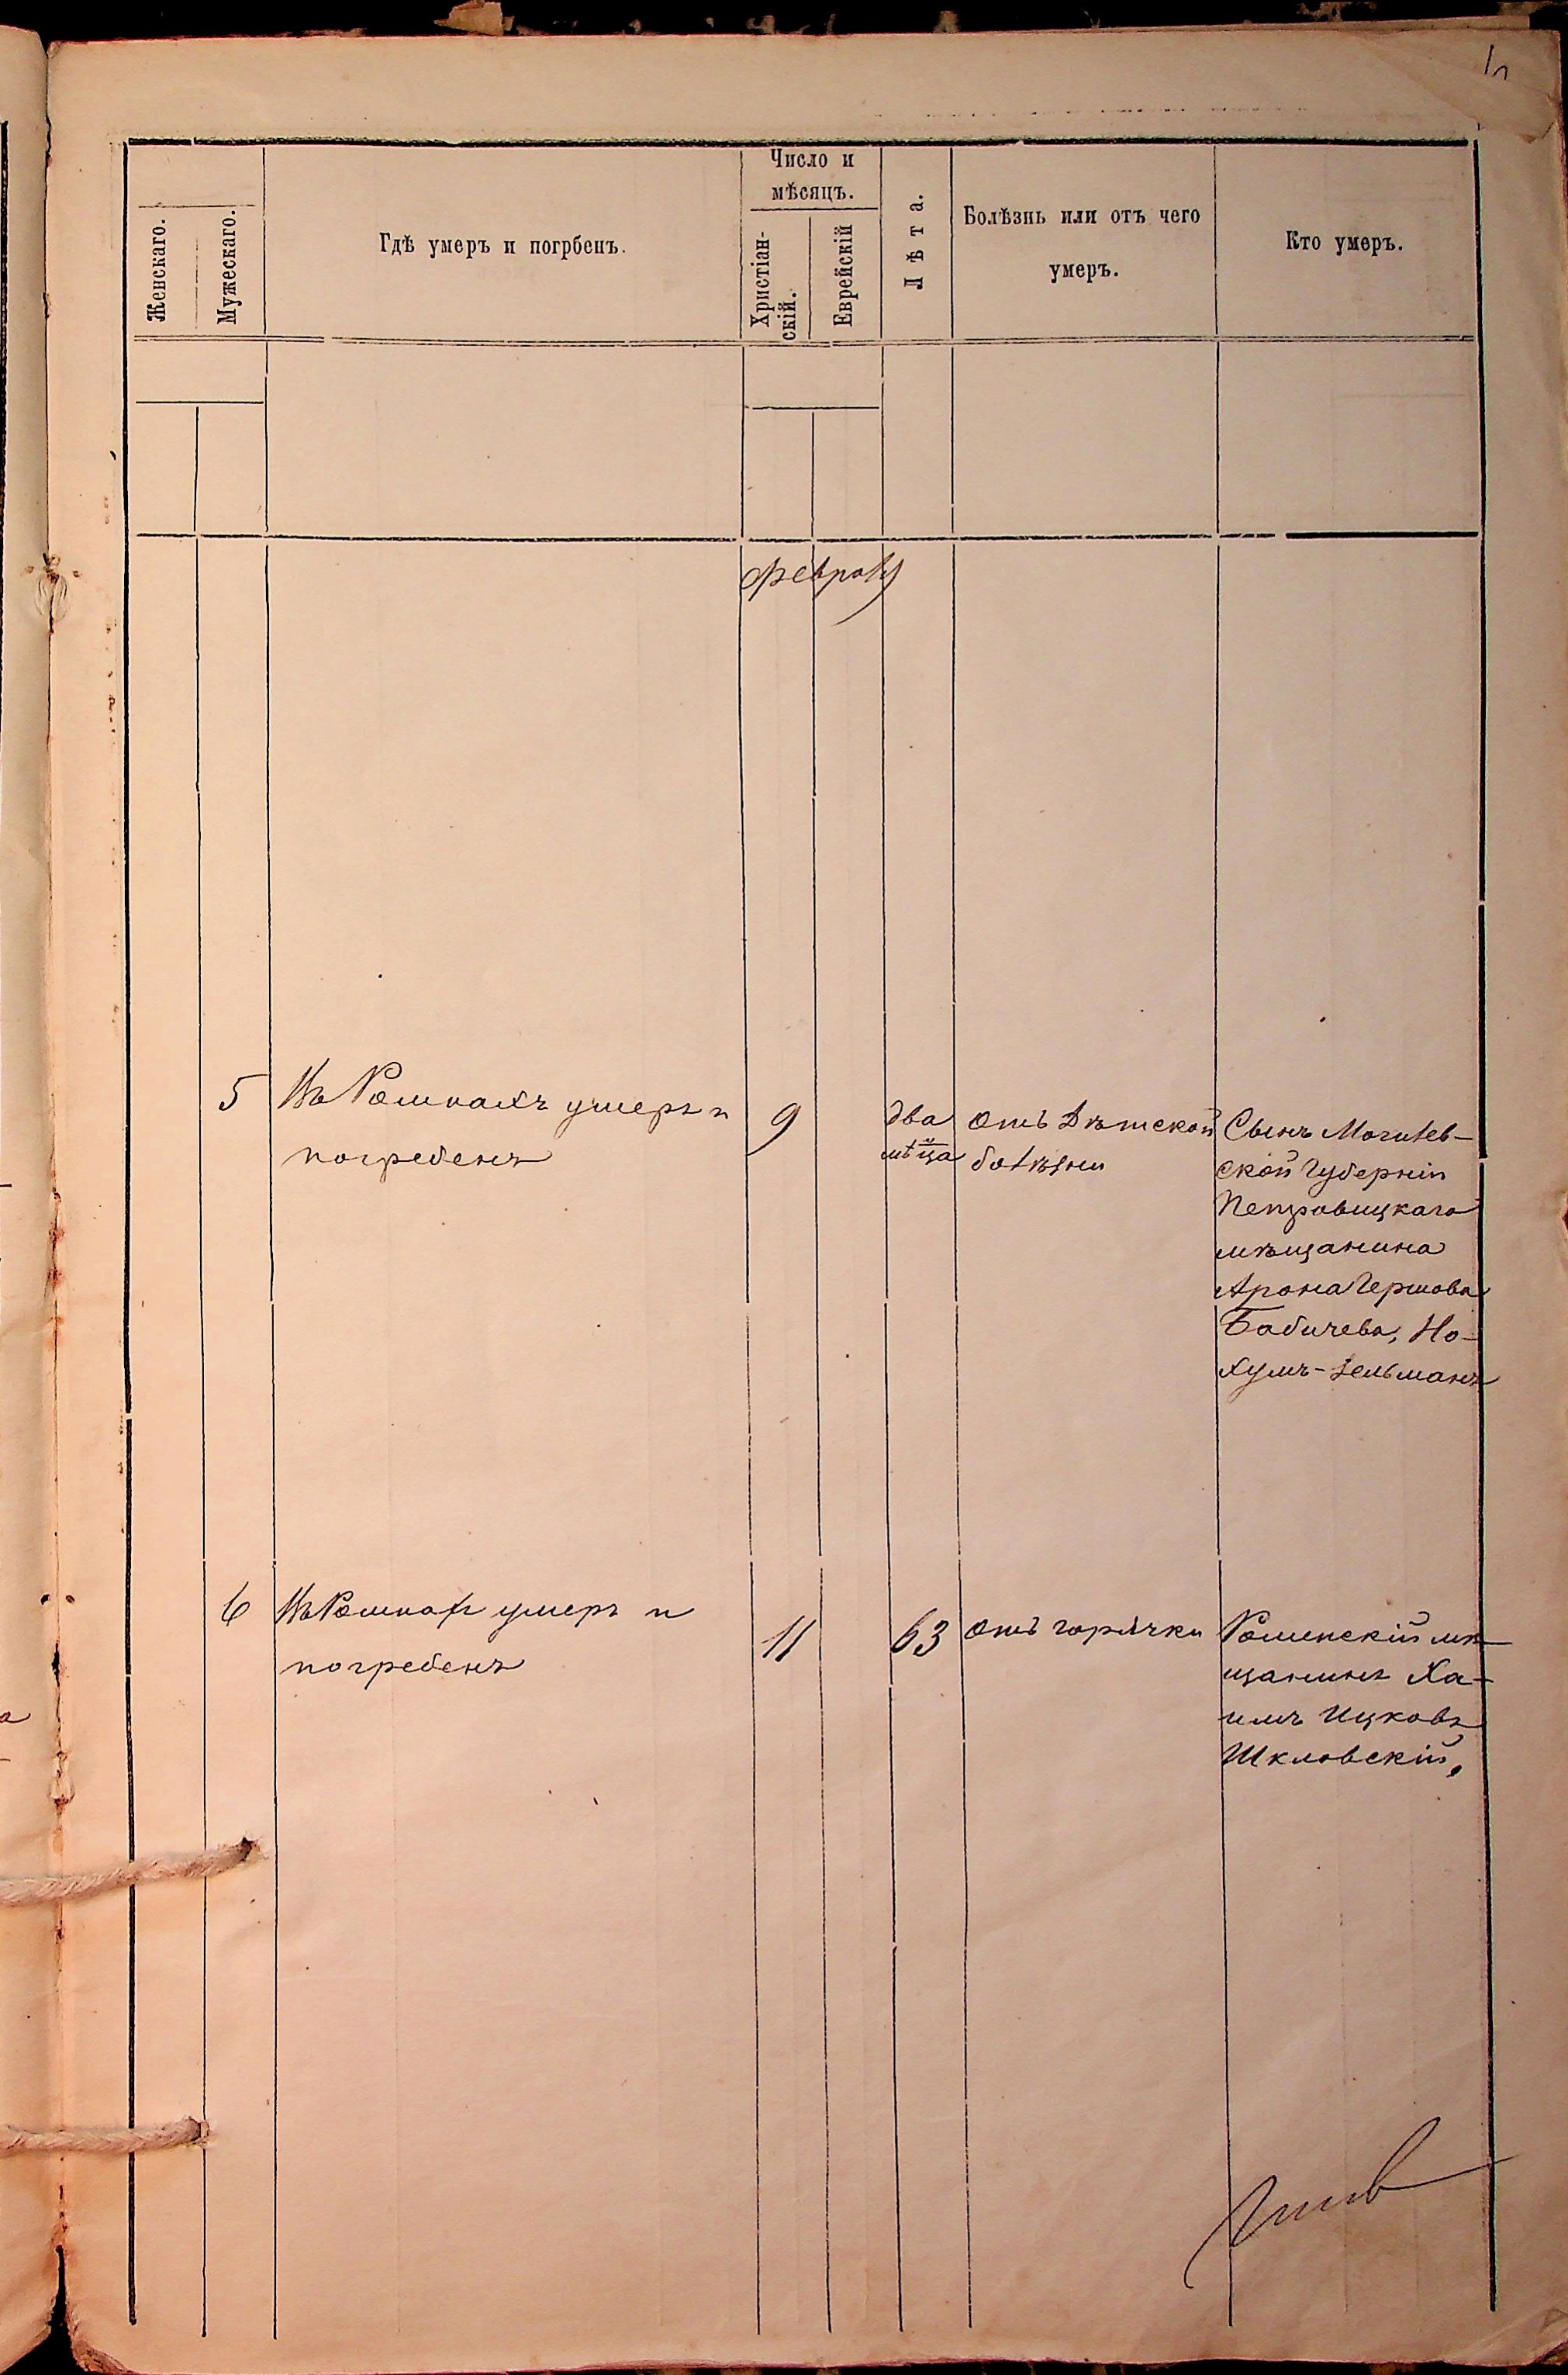 Женскаго.
Мужескаго.
Гдѣ умеръ и погрбенъ.
Число и
мѣсяцъ.
Христіан-
скій.
Еврейскій
Лѣта.
Болѣзнь или отъ чего
умеръ.
Кто умеръ.
5
Въ Ромнахъ умеръ и
погребенъ
9
два
мѣ-ца
отъ Дѣтской
болѣзни
Сынъ Могилев-
ской Губерніи
Петровицкаго
мѣщанина
Арона Гершова
Бабичева, Но-
хумъ-Зельманъ
6
Въ Ромнахъ умеръ и
погребенъ
11
63
отъ горячки
Роменскій мѣ-
щанинъ Ха-
имъ Ицковъ
Шкловскій.